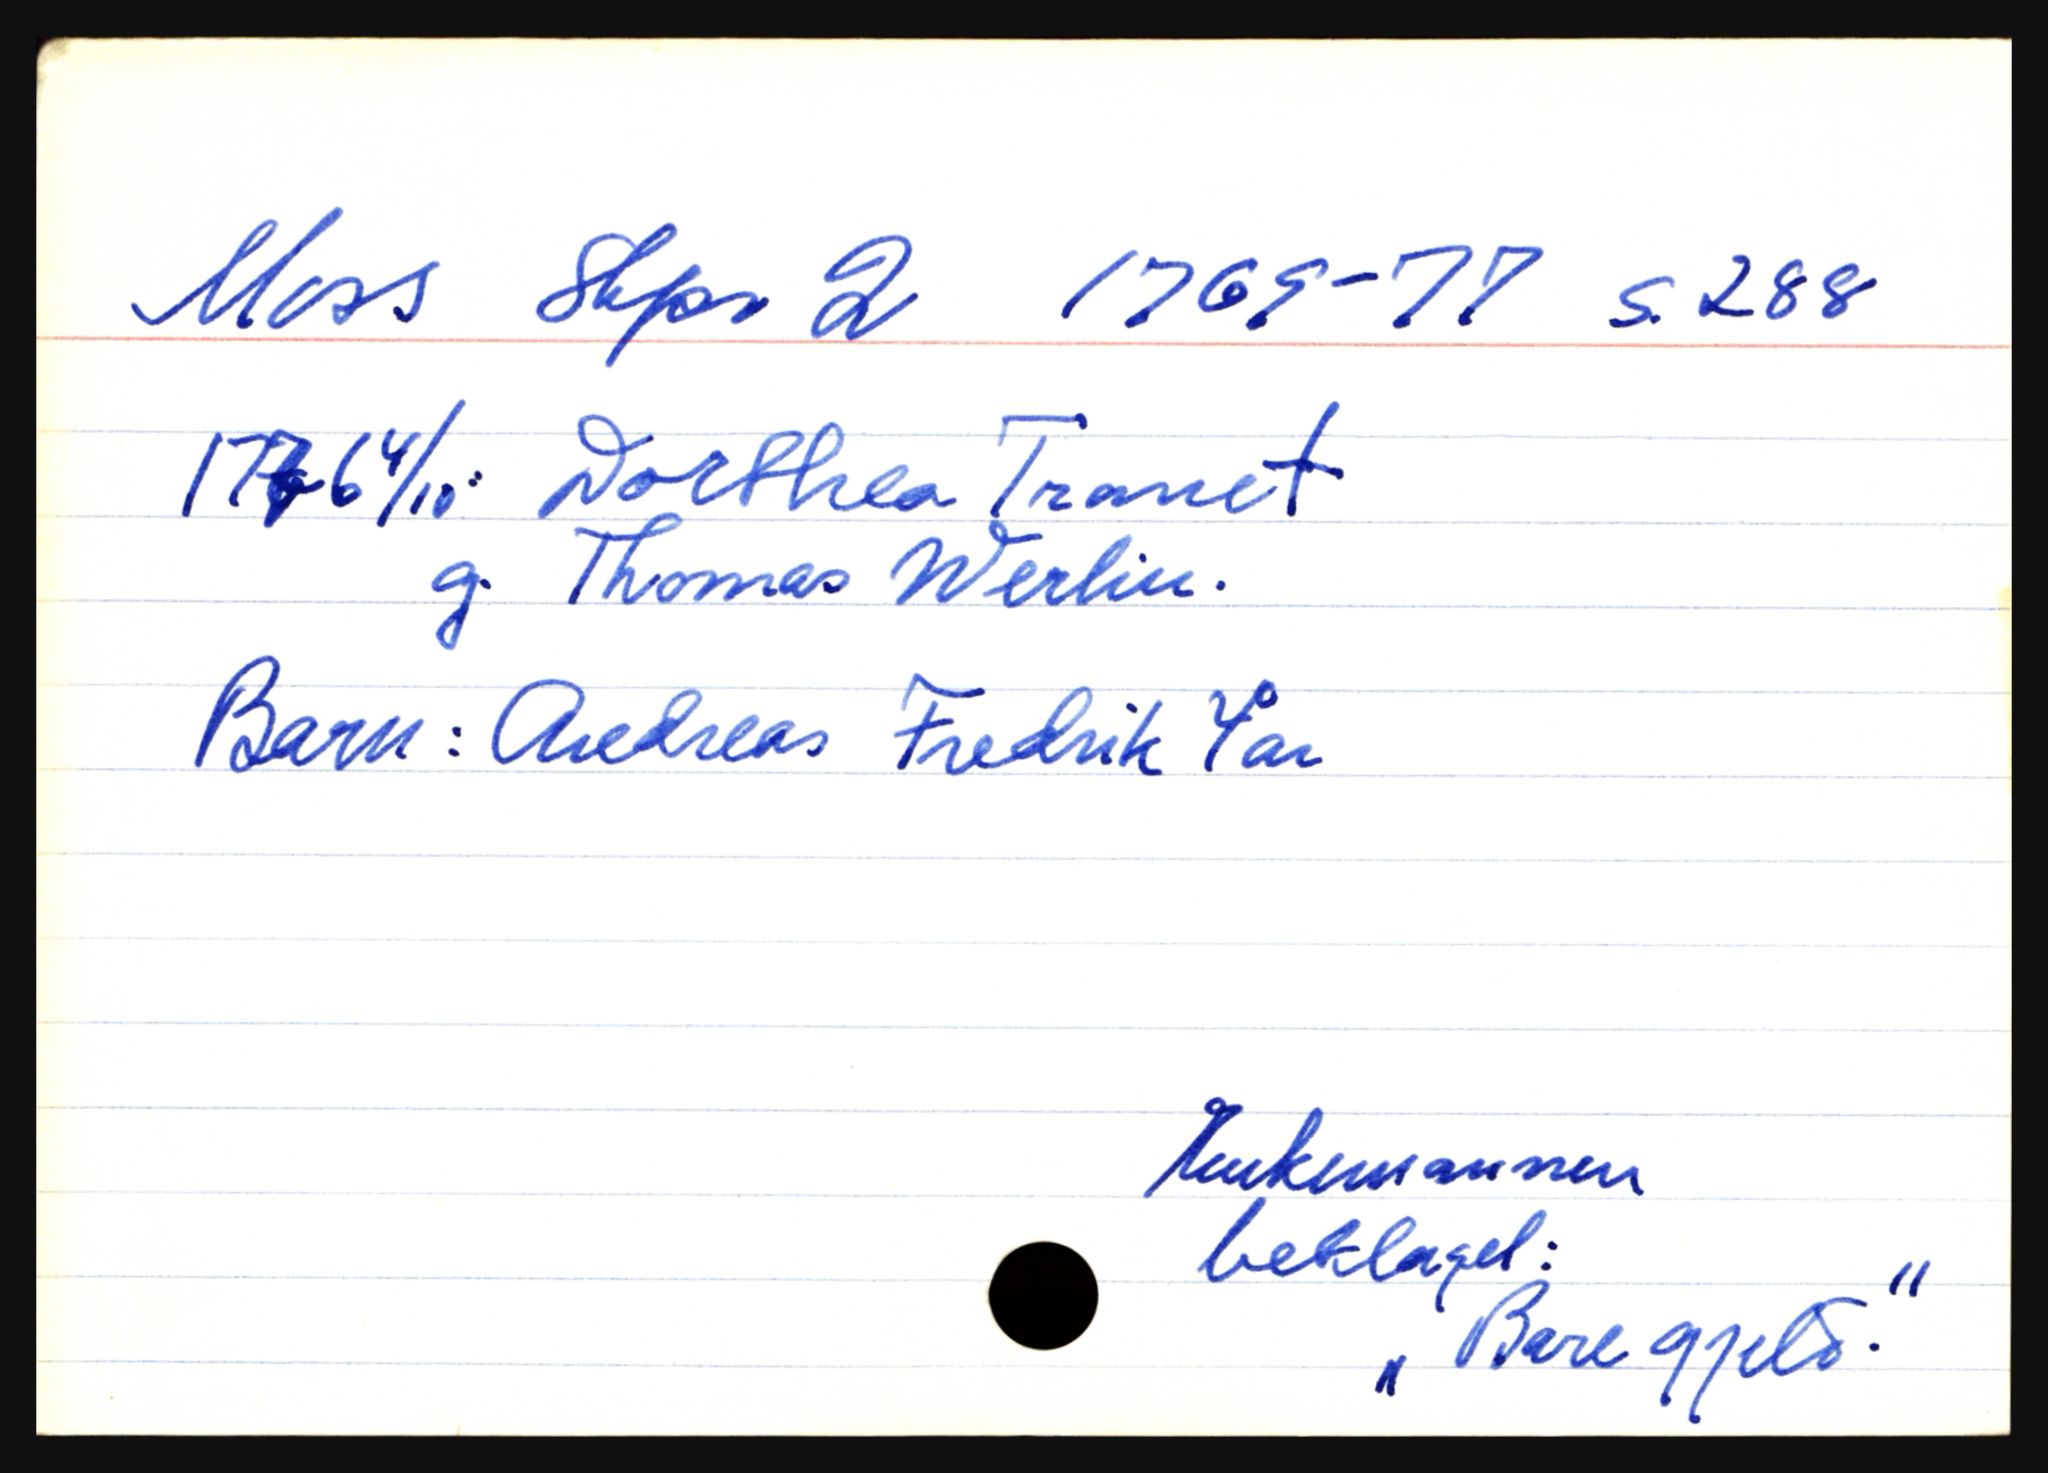 Moss Skpr 2 1769-77 s. 288
1766 4/10: Dorthea Tranet
g. Thomas Werlin.
Barn: Andreas Fredrik 4 år
Enkemannen
beklaget:
„Bare gjeld."